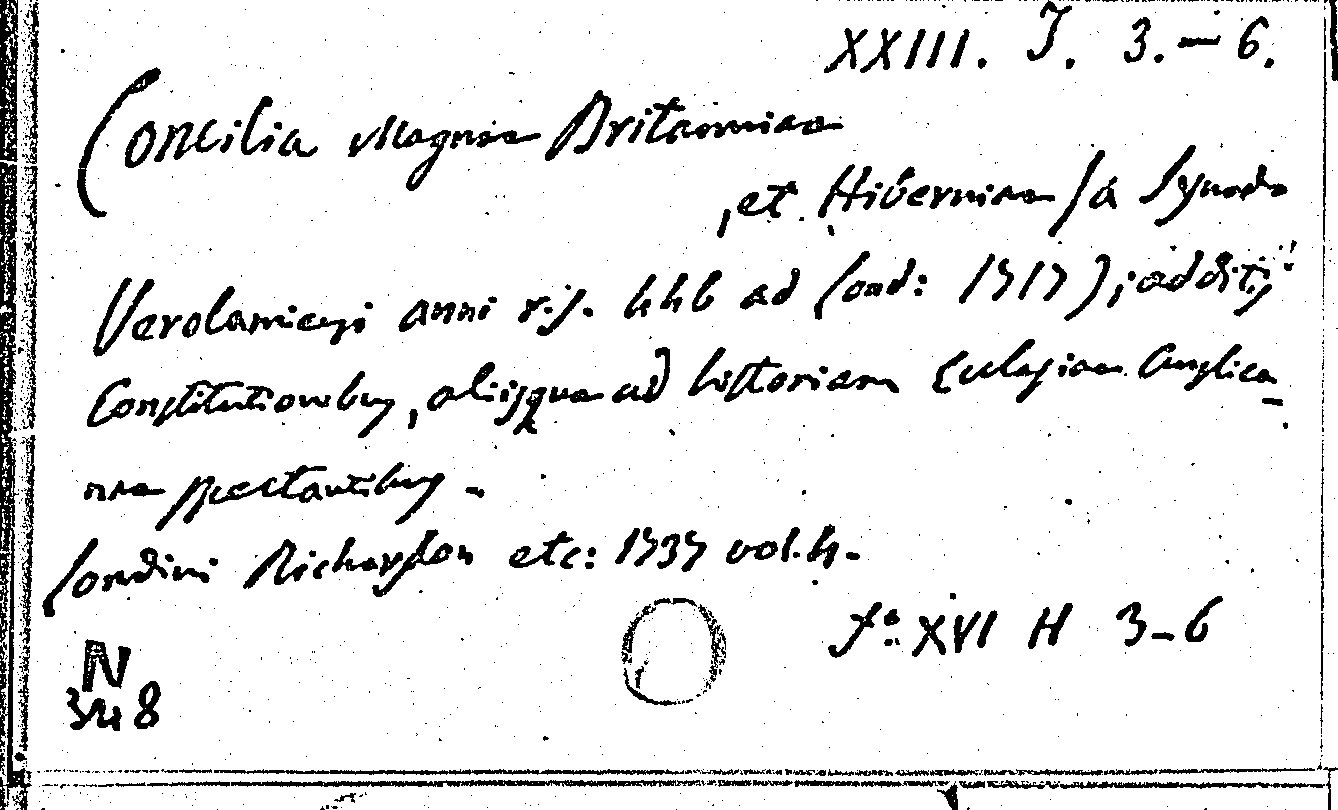 XXIII. J. 3.—6.
Concilia Magnae Britanniae
et Hiberniae / a Synodo
Verolamiensi anni 446 ad Lond: 1717); additis
Constitutionibus, aliisque ad historiam Ecclesiae Anglica-
nae spectantibus -
Londini Richardson etc: 1737 vol. 4.
fo: XVI H 3-6
N
348